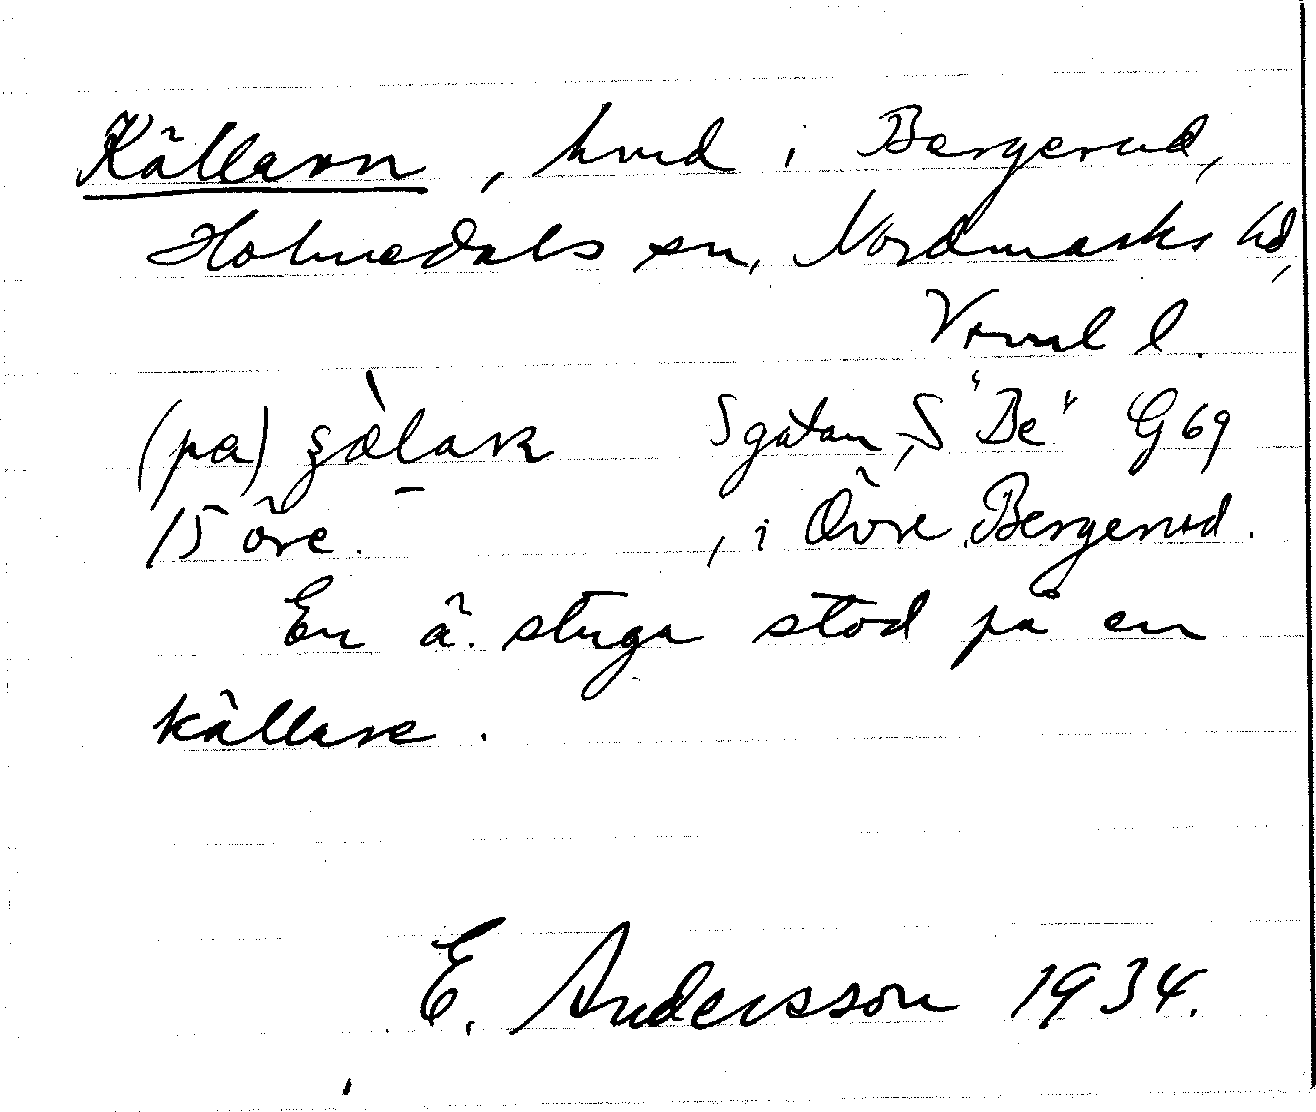 Källarn, hmd i Bergerud,
Holmedals sn, Nordmarks hd,
Vrml l.
(pa) S gatan, S "Be" G 69
15 öre. , i Övre Bergerud.
En ä. stuga stod på en
källare.
E. Andersson 1934.